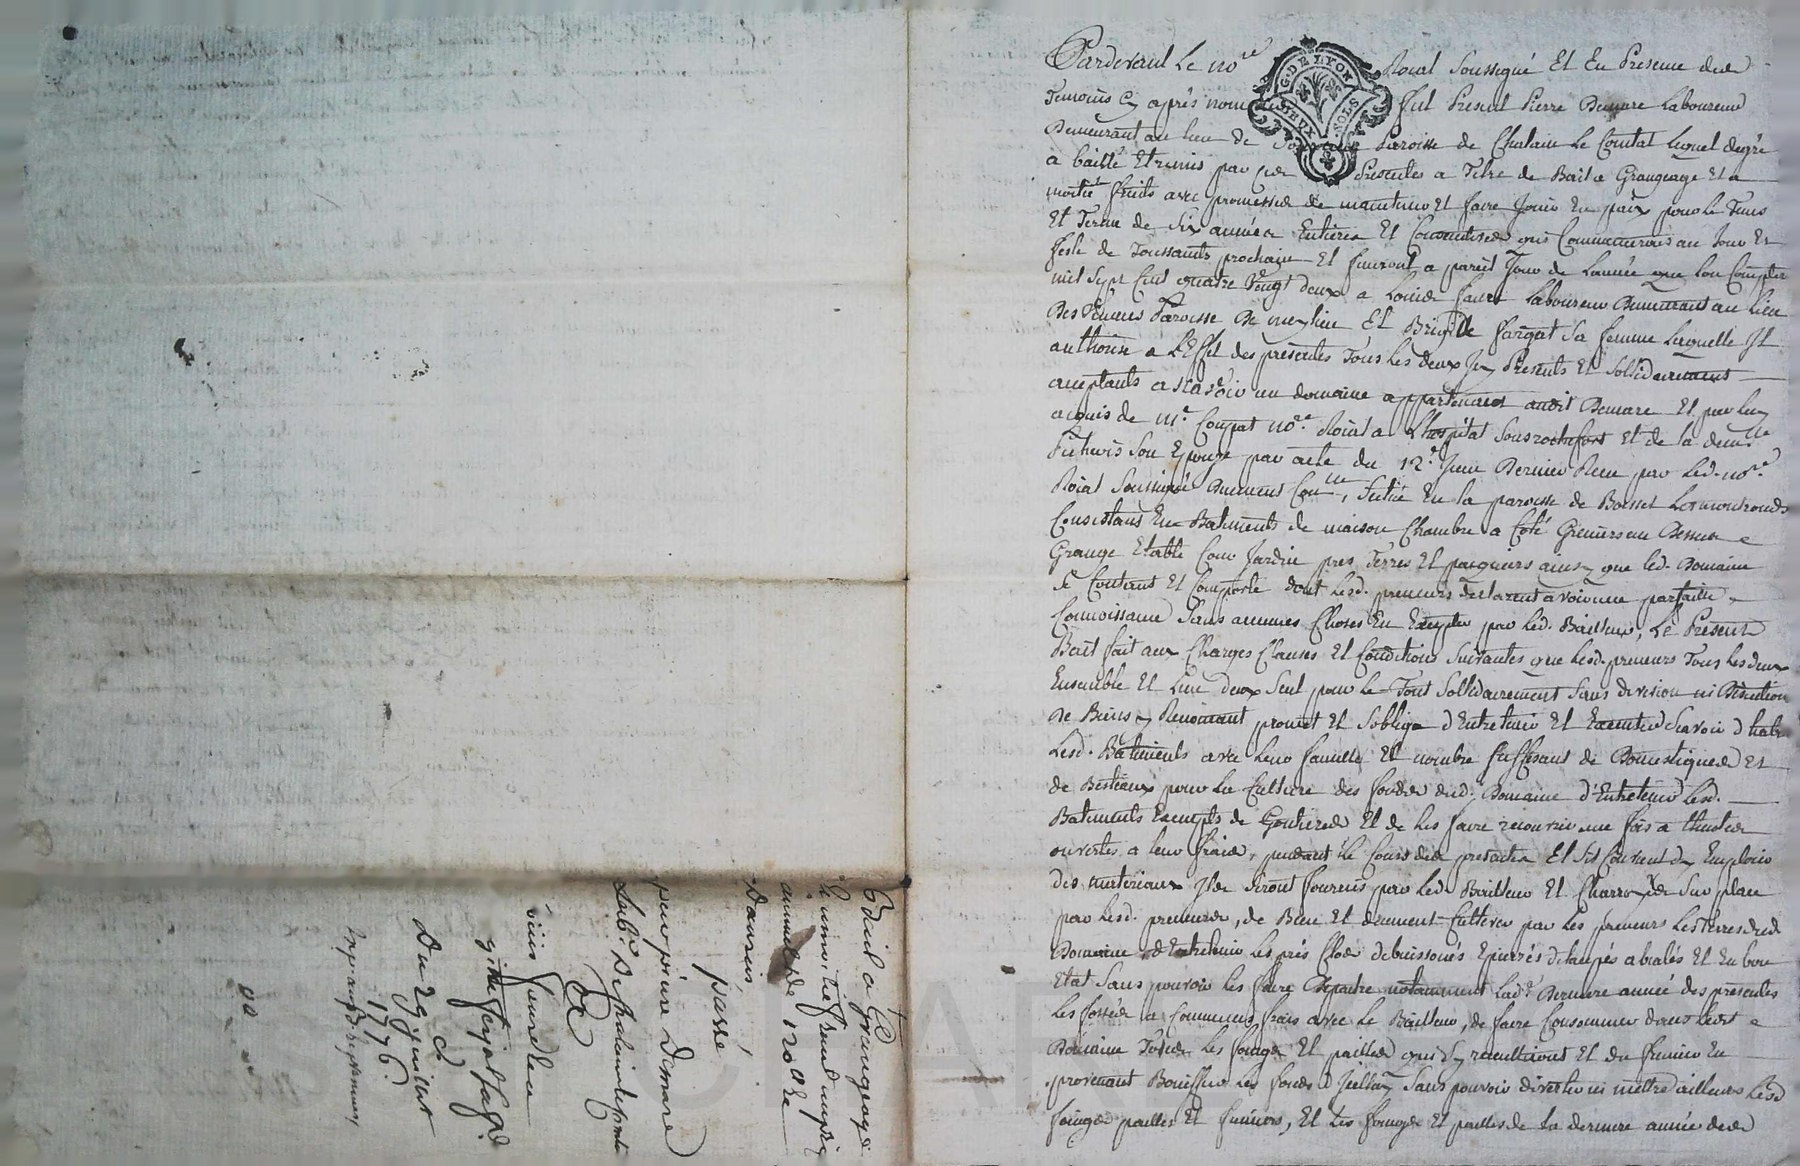 Pardevant Le no.re Roial Soussigné Et En Presence des
Temoins Cy après nommés fut Present Pierre Demare Laboureur
Demeurant au lieu de Paroisse de Chalain Le Comtal Lequel de gré
a baillé Et remis par ces Presentes a Titre de Bail a Grangeage Et a
moitié fruits avec promesses de maintenir Et faire Jouir En paix pour le Tems
Et Terme de Six années Entieres Et Consecutives qui Commenceront au Jour Et
feste de Toussaints prochain Et finiront a pareil Jour de Lannée que Lon Comptera
mil Sept Cent quatre Vingt deux a Louis faure Laboureur Demeurant au Lieu
Des Paroisse De meylieu Et Brigitte fargat Sa femme Laquelle Il
authorise a L'Effet des presentes Tous Les deux Icy Presents Et Sollidairement
acceptants a scavoir un domaine appartenant audit Demare Et par luy
acquis de m.e Compat no.re Roial a Lhospital Sous rochefort Et de la dem.lle
Son Epouse par acte du 12.e Juin Dernier Recu par Led. no.re
Roial Soussigné Duement , Scitué En la paroisse de Boisset Les montronds
Consistans En Batiments de maison Chambre a Coté Greniers au Dessus
Grange Etable Cour Jardin pres Terres Et pasquiers ainsy que led. Domaine
Se Contient Et Comporte dont Lesd. preneurs declarent avoir une parfaitte
Connoissance Sans aucunes Choses En Excepter par Led. Bailleur, Le Present
Bail fait aux Charges Clauses Et Conditions Suivantes que Lesd. preneurs Tous Les deux
Ensemble Et Lun deux Seul pour Le Tout Sollidairement Sans division ni Discution
De Biens y Renoncant promet Et Soblige d'Entretenir Et Executer Scavoir d'habiter
Lesd. Batiments avec Leur famille Et nombre suffisant de Domestiques Et
de Bestiaux pour La Culture des fonds dud. Domaine d'Entretenir Lesd.
Batiments Exempts de Goutieres Et de les faire recouvrir une fois a thuiles
ouvertes a leur fraix, pendant le Cours des presentes Et
des materiaux Ils Seront fournis par Led. Bailleur Et Charroyés Sur place
par Lesd. preneurs, de Bien Et duement Cultiver par Les preneurs Les Terres dud.
Domaine, d'Entretenir Les prés Clos debuissonés Epierrés détaupés abialés Et En bon
Etat Sans pouvoir les faire Depaitre notamment Lad.e Derniere année des presentes
Les fossés a Communs frais avec Le Bailleur, de faire Consommer dans Ledit
Domaine Tous Les foings Et pailles qui Sy recueilliront Et du fumier En
provenant Bonifier Les fonds d'Iceluy Sans pouvoir divertir ni mettre ailleurs Lesd.
foings pailles Et fumiers, Et Les foings Et pailles de la derniere année des
G. DE LYON
DEUX SOLS
Bail a grangeage
a moitié fruit
annuel de 120 #
Daureis,
passé
par pierre Demare
Lab.r De Chalain le Comtal
a
Louis faure Lab.r
Brigitte fargat Sa f.e
Du 29 juillet
1776.
CHARLY